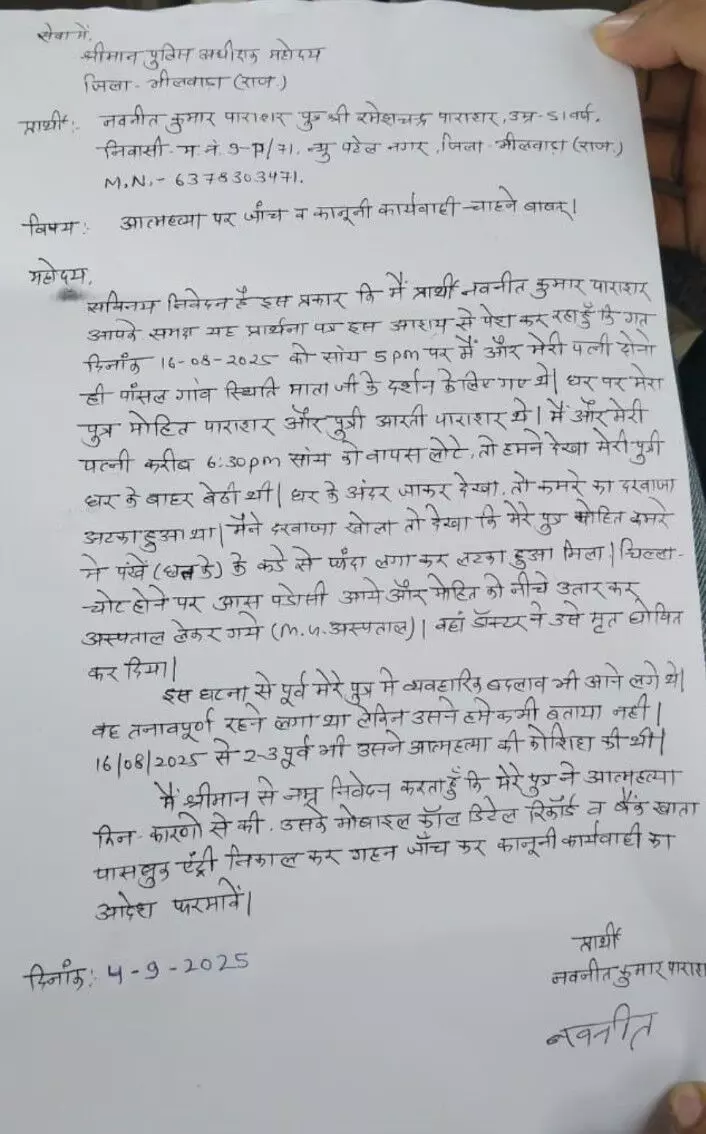 सेवा में,
श्रीमान पुलिस अधीक्षक महोदय
जिला - भीलवाडा (राज.)
प्रार्थी:- नवनीत कुमार पाराशर पुत्र श्री रमेशचन्द्र पाराशर, उम्र - 51 वर्ष,
निवासी - म.नं. 9-P/71, न्यु पटेल नगर, जिला - भीलवाडा (राज.)
M.N.- 6378303471.
विषय:- आत्महत्या पर जाँच व कानूनी कार्यवाही चाहने बाबत्।
महोदय,
सविनय निवेदन है इस प्रकार कि मैं प्रार्थी नवनीत कुमार पाराशर
आपके समक्ष यह प्रार्थना पत्र इस आशय से पेश कर रहा हुँ कि गत
दिनांक 16-08-2025 को सांय 5 pm पर मैं और मेरी पत्नी दोनो
ही पांसल गांव स्थिति माता जी के दर्शन के लिए गए थे। घर पर मेरा
पुत्र मोहित पाराशर और पुत्री आरती पाराशर थे। मैं और मेरी
पत्नी करीब 6:30pm सांय को वापस लोटे, तो हमने देखा मेरी पुत्री
घर के बाहर बेठी थी। घर के अंदर जाकर देखा, तो कमरे का दरवाजा
अटका हुआ था। मैंने दरवाजा खोला तो देखा कि मेरे पुत्र मोहित कमरे
मे पंखें (छत के) के कडे से फंदा लगा कर लटका हुआ मिला। चिल्ला-
चोट होने पर आस पडोसी आये और मोहित को नीचे उतार कर
अस्पताल लेकर गये (M.G. अस्पताल)। वहां डॉक्टर ने उसे मृत घोषित
कर दिया।
इस घटना से पूर्व मेरे पुत्र मे व्यवहारिक बदलाव भी आने लगे थे।
वह तनावपूर्ण रहने लगा था लेकिन उसने हमे कभी बताया नही।
16/08/2025 से 2-3 पूर्व भी उसने आत्महत्या की कोशिश की थी।
मैं श्रीमान से नम्र निवेदन करता हुँ कि मेरे पुत्र ने आत्महत्या
किन-कारणो से की, उसके मोबाइल कॉल डिटेल रिकॉर्ड व बैंक खाता
पासबुक एंट्री निकाल कर गहन जाँच कर कानूनी कार्यवाही का
आदेश फरमावें।
दिनांक:- 4-9-2025
प्रार्थी
नवनीत कुमार पाराश
नवनीत